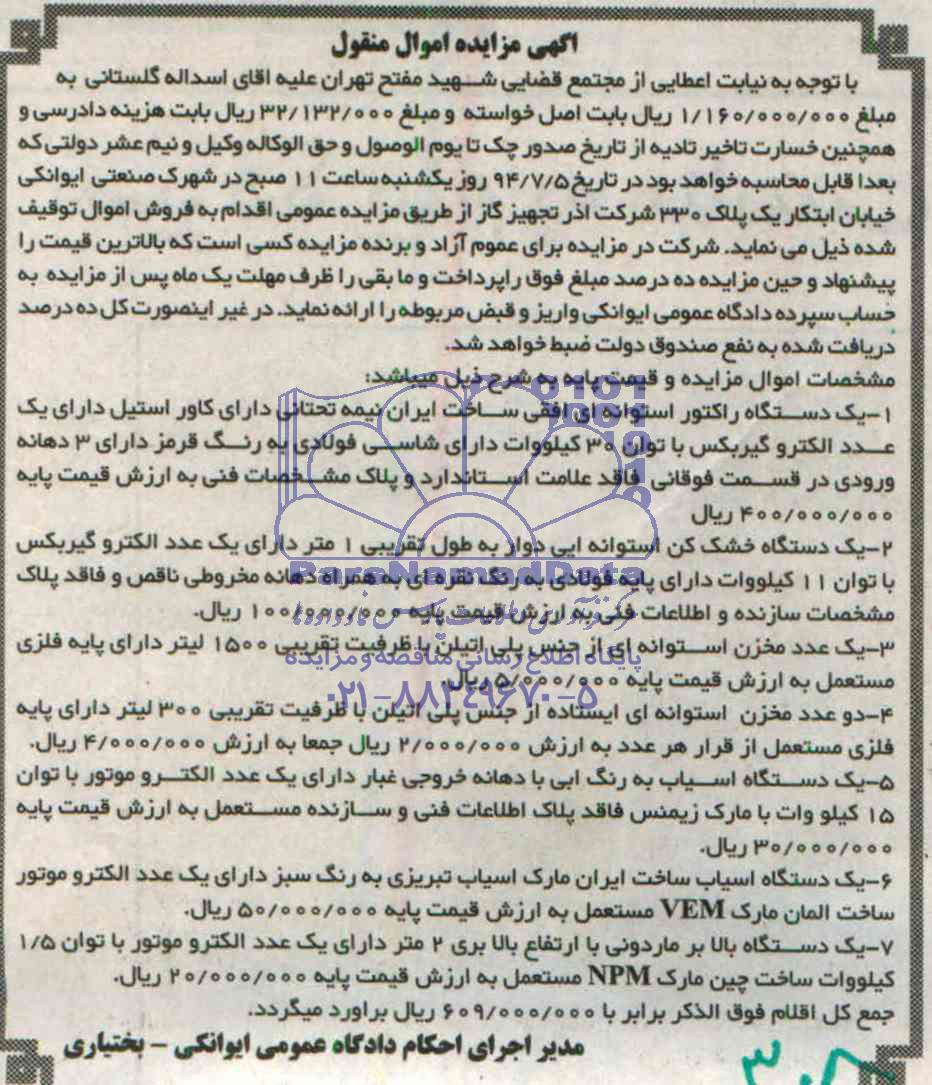 آگهی مزایده اموال منقول
با توجه به نیابت اعطایی از مجتمع قضایی شهید مفتح تهران علیه اقای اسداله گلستانی به
مبلغ ۱/۱۶۰/۰۰۰/۰۰۰ ریال بابت اصل خواسته و مبلغ ۳۲/۱۳۲/۰۰۰ ریال بابت هزینه دادرسی و
همچنین خسارت تاخیر تادیه از تاریخ صدور چک تا یوم الوصول و حق الوکاله وکیل و نیم عشر دولتی که
بعدا قابل محاسبه خواهد بود در تاریخ ۹۴/۷/۵ روز یکشنبه ساعت ۱۱ صبح در شهرک صنعتی ایوانکی
خیابان ابتکار یک پلاک ۳۳۰ شرکت اذر تجهیز گاز از طریق مزایده عمومی اقدام به فروش اموال توقیف
شده ذیل می نماید. شرکت در مزایده برای عموم آزاد و برنده مزایده کسی است که بالاترین قیمت را
پیشنهاد و حین مزایده ده درصد مبلغ فوق راپرداخت و ما بقی را ظرف مهلت یک ماه پس از مزایده به
حساب سپرده دادگاه عمومی ایوانکی واریز و قبض مربوطه را ارائه نماید. در غیر اینصورت کل ده درصد
دریافت شده به نفع صندوق دولت ضبط خواهد شد.
مشخصات اموال مزایده و قیمت پایه به شرح ذیل میباشد:
۱-یک دستگاه راکتور استوانه ای افقی ساخت ایران نیمه تحتانی دارای کاور استیل دارای یک
عدد الکترو گیربکس با توان ۳۰ کیلووات دارای شاسی فولادی به رنگ قرمز دارای ۳ دهانه
ورودی در قسمت فوقانی فاقد علامت استاندارد و پلاک مشخصات فنی به ارزش قیمت پایه
۴۰۰/۰۰۰/۰۰۰ ریال
۲-یک دستگاه خشک کن استوانه ایی دوار به طول تقریبی ۱ متر دارای یک عدد الکترو گیربکس
با توان ۱۱ کیلووات دارای پایه فولادی به رنگ نقره ای به همراه دهانه مخروطی ناقص و فاقد پلاک
مشخصات سازنده و اطلاعات فنی به ارزش قیمت پایه ۱۰۰/۰۰۰/۰۰۰ ریال.
ParsNamadData
۳-یک عدد مخزن استوانه ای از جنس پلی اتیلن با ظرفیت تقریبی ۱۵۰۰ لیتر دارای پایه فلزی
پایگاه اطلاع رسانی مناقصه و مزایده
مستعمل به ارزش قیمت پایه ۵/۰۰۰/۰۰۰ ریال.
۰۲۱-۸۸۳۴۹۶۷۰-۵
۴-دو عدد مخزن استوانه ای ایستاده از جنس پلی اتیلن با ظرفیت تقریبی ۳۰۰ لیتر دارای پایه
فلزی مستعمل از قرار هر عدد به ارزش ۲/۰۰۰/۰۰۰ ریال جمعا به ارزش ۴/۰۰۰/۰۰۰ ریال.
۵-یک دستگاه اسیاب به رنگ ابی با دهانه خروجی غبار دارای یک عدد الکترو موتور با توان
۱۵ کیلو وات با مارک زیمنس فاقد پلاک اطلاعات فنی و سازنده مستعمل به ارزش قیمت پایه
۳۰/۰۰۰/۰۰۰ ریال.
۶-یک دستگاه اسیاب ساخت ایران مارک اسیاب تبریزی به رنگ سبز دارای یک عدد الکترو موتور
ساخت المان مارک VEM مستعمل به ارزش قیمت پایه ۵۰/۰۰۰/۰۰۰ ریال.
۷-یک دستگاه بالا بر ماردونی با ارتفاع بالا بری ۲ متر دارای یک عدد الکترو موتور با توان ۱/۵
کیلووات ساخت چین مارک NPM مستعمل به ارزش قیمت پایه ۲۰/۰۰۰/۰۰۰ ریال.
جمع کل اقلام فوق الذکر برابر با ۶۰۹/۰۰۰/۰۰۰ ریال براورد میگردد.
مدیر اجرای احکام دادگاه عمومی ایوانکی - بختیاری